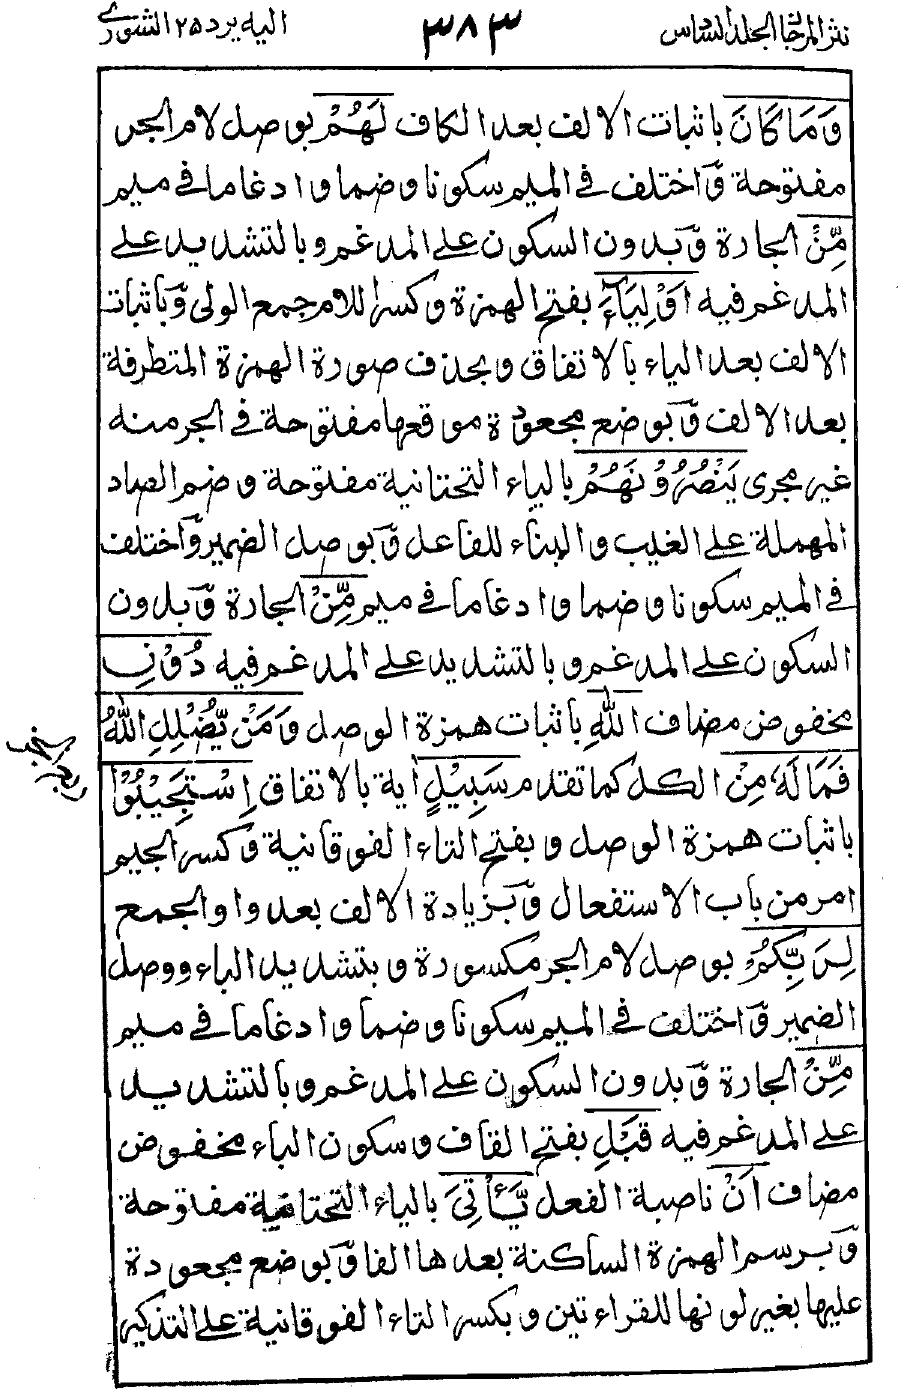 نثر المرجان الجلد السادس
٣٨٣
اليه يرد ٢٥ الشورى
وَمَا كَانَ باثبات الالف بعد الكاف لَهُمْ بوصل لام الجر
مفتوحة وٓاختلف في الميم سكونا وضما وادغاما في ميم
مِّنْ الجارة وٓبدون السكون على المدغم وبالتشديد على
المدغم فيه اَوْلِيَآءَ بفتح الهمزة وكسر اللام جمع الولى وٓباثبات
الالف بعد الياء بالاتفاق وبحذف صورة الهمزة المتطرفة
بعد الالف وٓبوضع مجعودة موقعها مفتوحة في الجر منه
غير مجرى يَنْصُرُوْنَهُمْ بالياء التحتانية مفتوحة وضم الصاد
المهملة على الغيب والبناء للفاعل وٓبوصل الضمير وٓاختلف
في الميم سكونا وضما وادغاما في ميم مِّنْ الجارة وٓبدون
السكون على المدغم وبالتشديد على المدغم فيه دُوْنِ
مخفوض مضاف اللّٰهِ باثبات همزة الوصل وَمَنْ يُّضْلِلِ اللّٰهُ
فَمَا لَهٗ مِنْ الكل كما تقدم سَبِيْلٍ أية بالاتفاق اِسْتَجِيْبُوْا
باثبات همزة الوصل وبفتح التاء الفوقانية وٓكسر الجيم
امر من باب الاستفعال وٓبزيادة الالف بعد واو الجمع
لِرَبِّكُمْ بوصل لام الجر مكسورة وبتشديد الباء ووصل
الضمير وٓاختلف في الميم سكونا وضما وادغاما في ميم
مِّنْ الجارة وٓبدون السكون على المدغم وبالتشديد
على المدغم فيه قَبْلِ بفتح القاف وسكون الباء مخفوض
مضاف اَنْ ناصبة الفعل يَّأْتِيَ بالياء التحتانية مفتوحة
وٓبرسم الهمزة الساكنة بعدها الفا وٓبوضع مجعودة
عليها بغير لونها للقراءتين وبكسر التاء الفوقانية على التذكير